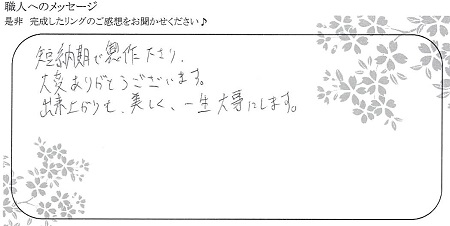 職人へのメッセージ
是非 完成したリングのご感想をお聞かせください♪
短納期で製作下さり、
大変ありがとうございます。
出来上がりも、美しく、一生大事にします。